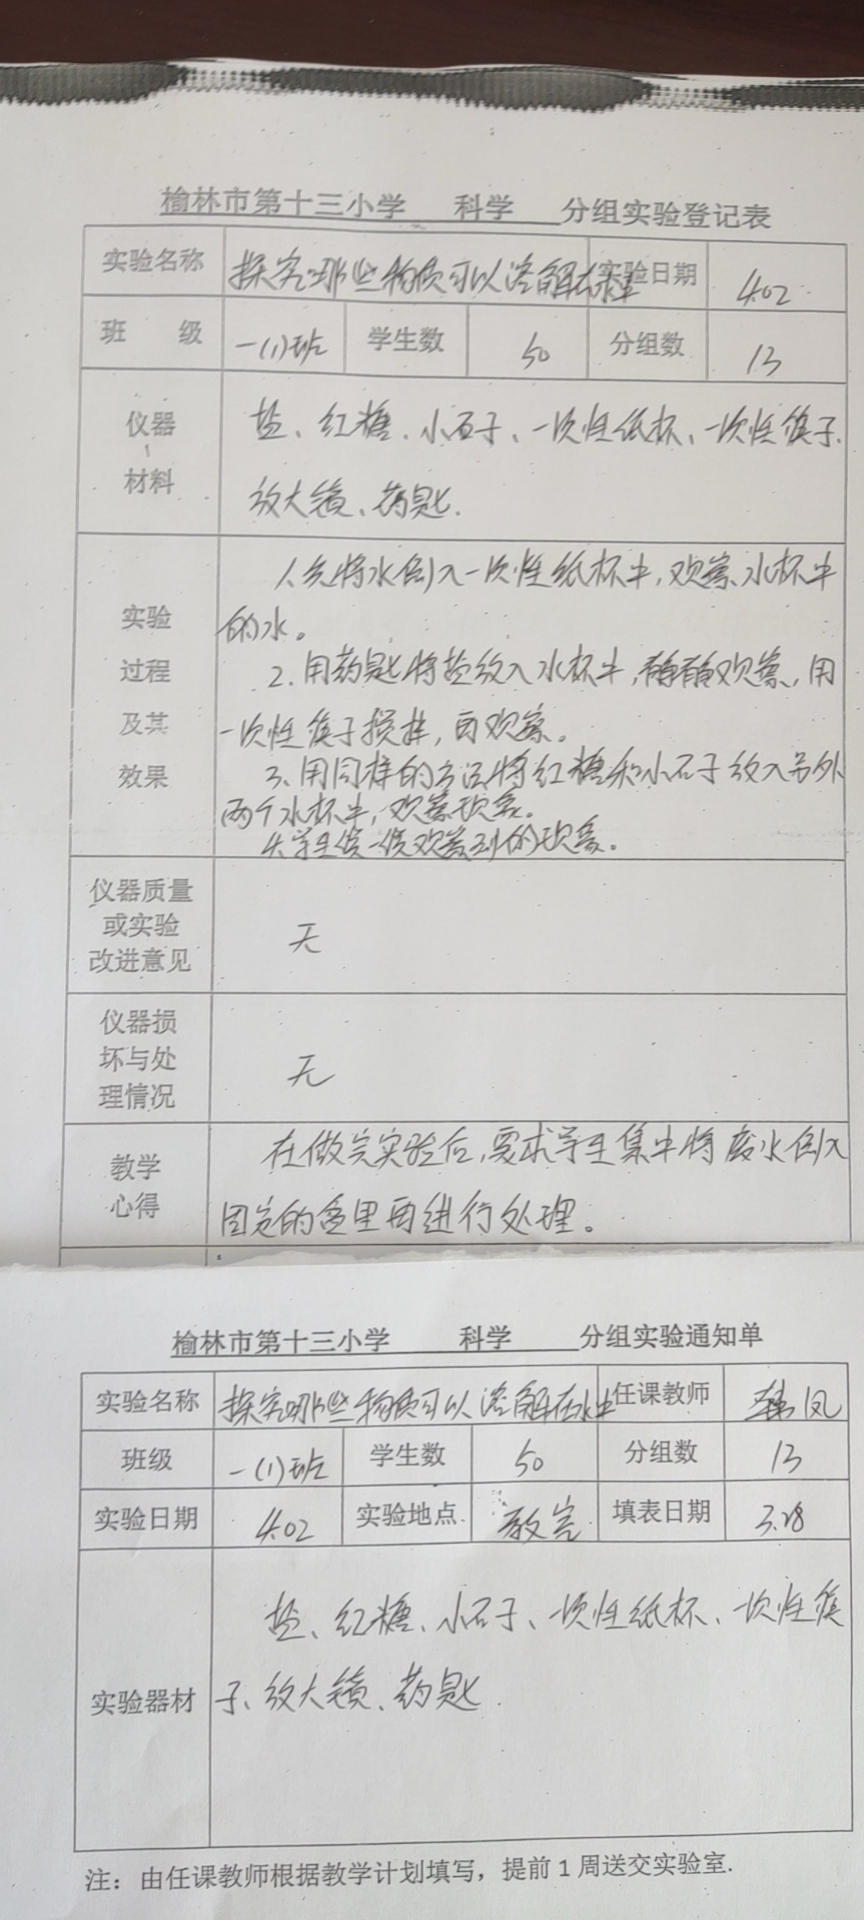 榆林市第十三小学 科学 分组实验登记表
实验名称 探究哪些物质可以溶解在水中 实验日期 4.02
班 级 一(1)班 学生数 50 分组数 13
仪器、材料
盐、红糖、小石子、一次性纸杯、一次性筷子、
放大镜、药匙.
实验过程及其效果
1.先将水倒入一次性纸杯中,观察水杯中
的水。
2.用药匙将盐放入水杯中,静静观察,用
一次性筷子搅拌,再观察。
3.用同样的方法将红糖和小石子放入另外
两个水杯中,观察现象。
4.学生说一说观察到的现象。
仪器质量或实验改进意见 无
仪器损坏与处理情况 无
教学心得
在做完实验后,要求学生集中将废水倒入
固定的盒里再进行处理。
榆林市第十三小学 科学 分组实验通知单
实验名称 探究哪些物质可以溶解在水中 任课教师 韩凤
班级 一(1)班 学生数 50 分组数 13
实验日期 4.02 实验地点 教室 填表日期 3.28
实验器材
盐、红糖、小石子、一次性纸杯、一次性筷
子、放大镜、药匙.
注：由任课教师根据教学计划填写，提前1周送交实验室.